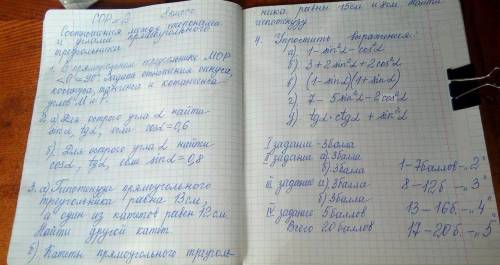 СОР №2 8 класс
Соотношения между сторонами
и углами прямоугольного
треугольника
1. В прямоугольном треугольнике МОР
<О = 90° Задать отношения синуса,
косинуса, тангенса и котангенса
углов М и Р.
2. а) Для острого угла α найти
sinα, tgα, если cosα=0,6
б) Для острого угла α найти
cosα, tgα, если sinα=0,8
3. а) Гипотенуза прямоугольного
треугольника равна 13см,
а один из катетов равен 12см.
Найти другой катет.
б) Катеты прямоугольного треуголь-
ника равны 15см и 8см. Найти
гипотенузу.
4. Упростить выражения:
а) 1-sin²α-cos²α
б) 3+2sin²α+2cos²α
в) (1-sinα)(1+sinα)
г) 7-5sin²α-2cos²α
д) tgα·ctgα+sin²α
I задание - 3балла
II задание а) 3балла
б) 3балла
III задание а) 3балла
б) 3балла
IV задание 5баллов
Всего 20баллов
1-7баллов-„2"
8-12б -„3"
13-16б. -„4"
17-20б.-„5"